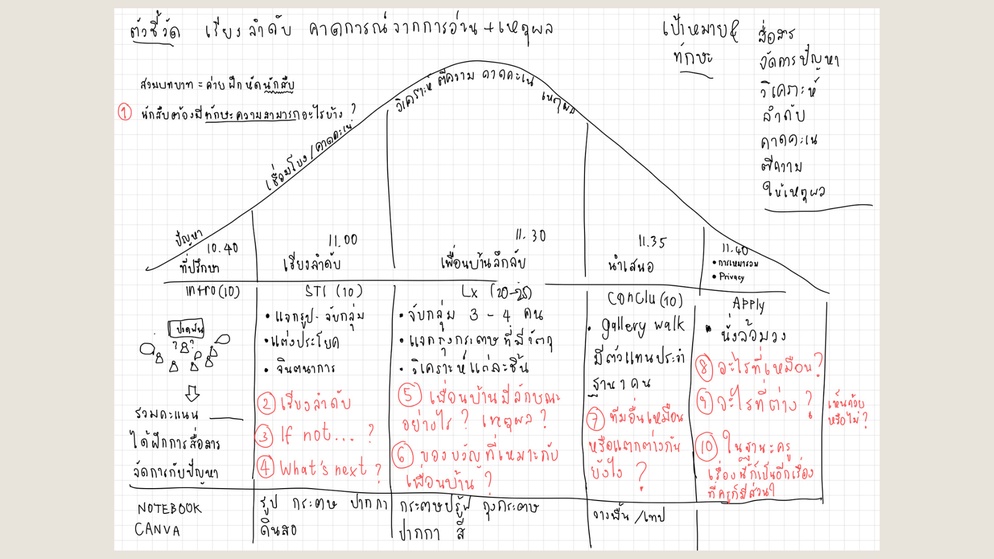 ตัวชี้วัด เรียงลำดับ คาดการณ์จากการอ่าน + เหตุผล
เป้าหมาย &
ทักษะ
สื่อสาร
จัดการปัญหา
วิเคราะห์
ลำดับ
คาดคะเน
ตีความ
ให้เหตุผล
สวมบทบาท = ค่ายฝึกหัดนักสืบ
① นักสืบต้องมีทักษะความสามารถอะไรบ้าง ?
ปัญหา
เชื่อมโยง / คาดคะเน
วิเคราะห์ ตีความ คาดคะเน เหตุผล
10.40
ที่ปรึกษา
11.00
เรียงลำดับ
11.30
เพื่อนบ้านลึกลับ
11.35
นำเสนอ
11.40
• การเหมารวม
• Privacy
Intro (10)
รวมคะแนน
ได้ฝึกการสื่อสาร
จัดการกับปัญหา
STI (10)
• แจกรูป - จับกลุ่ม
• แต่งประโยค
• จินตนาการ
② เรียงลำดับ
③ If not... ?
④ What's next ?
Lx (20-25)
• จับกลุ่ม 3 - 4 คน
• แจกถุงกระดาษที่มีวัตถุ
• วิเคราะห์แต่ละชิ้น
⑤ เพื่อนบ้านมีลักษณะ
อย่างไร ? เหตุผล ?
⑥ ของขวัญที่เหมาะกับ
เพื่อนบ้าน ?
Conclu (10)
• gallery walk
มีตัวแทนประจำ
ฐาน 1 คน
⑦ ทีมอื่นเหมือน
หรือแตกต่างกัน
ยังไง ?
Apply
• นั่งล้อมวง
⑧ อะไรที่เหมือน ?
⑨ อะไรที่ต่าง ?
เห็นด้วย
หรือไม่ ?
⑩ ในฐานะครู
เรื่องนี้ก็เป็นอีกเรื่อง
ที่ครูก็มีส่วน ?
NOTEBOOK
CANVA
รูป กระดาษ ปากกา
ดินสอ
กระดาษปรู๊ฟ ถุงกระดาษ
ปากกา สี
กาวพื้น / เทป